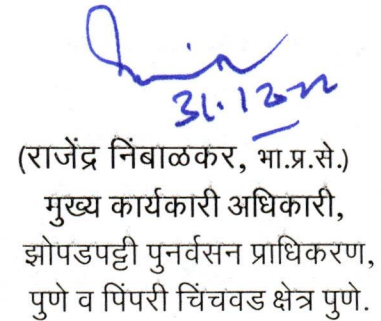 31.12.22
(राजेंद्र निंबाळकर, भा.प्र.से.)
मुख्य कार्यकारी अधिकारी,
झोपडपट्टी पुनर्वसन प्राधिकरण,
पुणे व पिंपरी चिंचवड क्षेत्र पुणे.